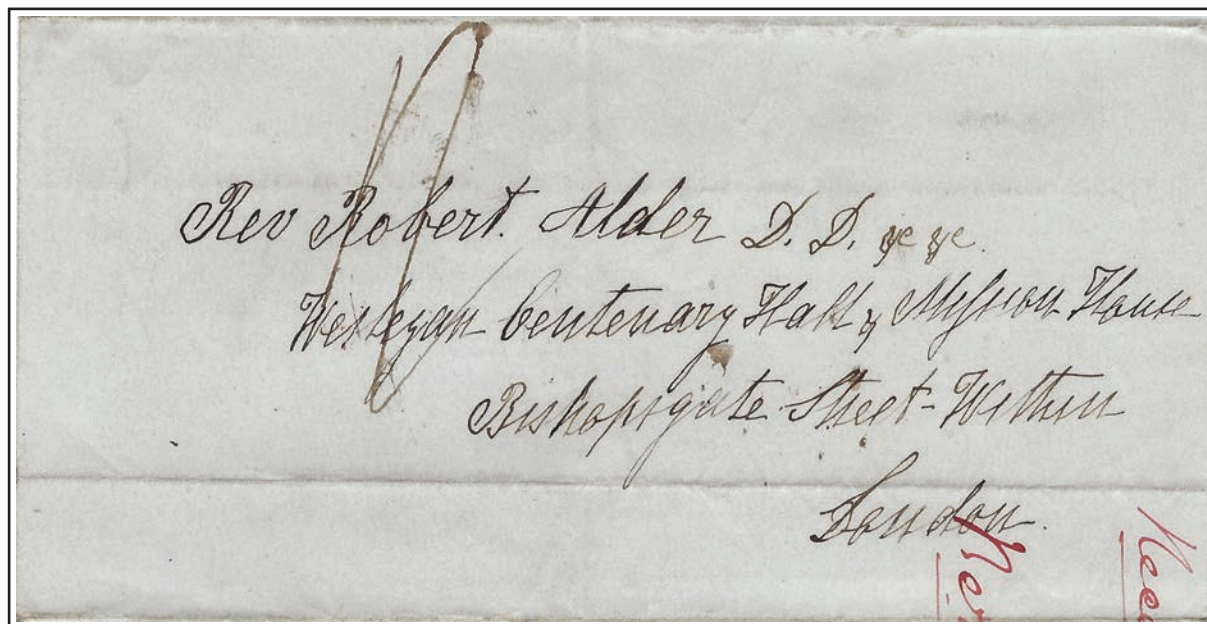 Rev Robert. Alder D. D. &c &c.
Wesleyan Centenary Hall & Mission House
Bishopsgate Street-Within
London.